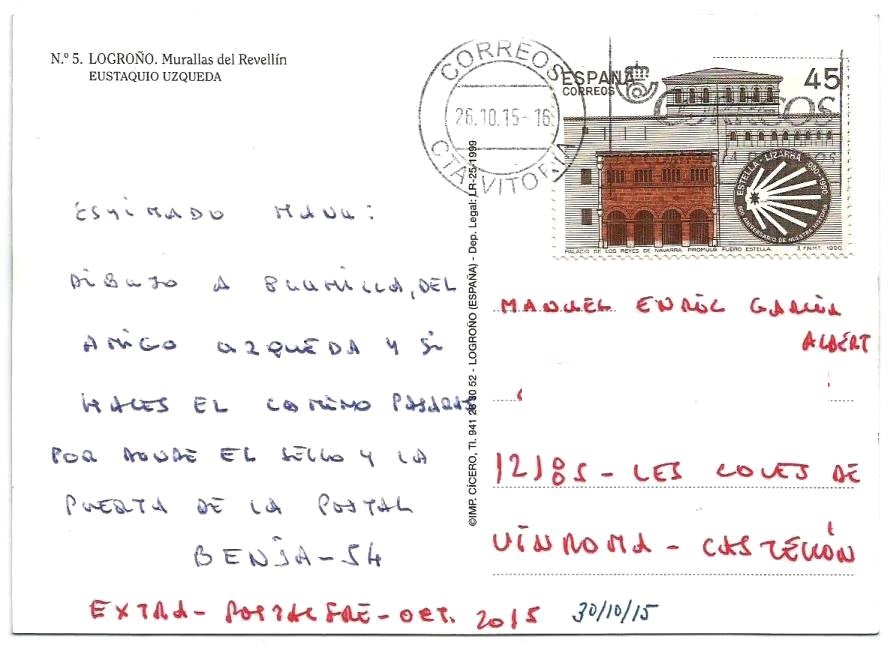 N.º 5. LOGROÑO. Murallas del Revellín
EUSTAQUIO UZQUEDA
CORREOS
26.10.15-16
CTA VITORIA
ESPAÑA
CORREOS
45
CORREOS
ESTELLA-LIZARRA 1090-1990
900 ANIVERSARIO DE NUESTRA HISTORIA
PALACIO DE LOS REYES DE NAVARRA. PROMULG. FUERO ESTELLA.
F.N.M.T. 1990
©IMP. CÍCERO, Tl. 941 26 30 52 - LOGROÑO (ESPAÑA) - Dep. Legal: LR-25-1999
ESTIMADO MANU:
DIBUJO A PLUMILLA, DEL
AMIGO UZQUEDA Y SI
HACES EL CAMINO PASARAS
POR DONDE EL SELLO Y LA
PUERTA DE LA POSTAL
BENJA-54
EXTRA-POSTALFRE-OCT. 2015
30/10/15
MANUEL ENRIC GARCIA
ALBERT
12185-LES COVES DE
VINROMA-CASTELLÓN